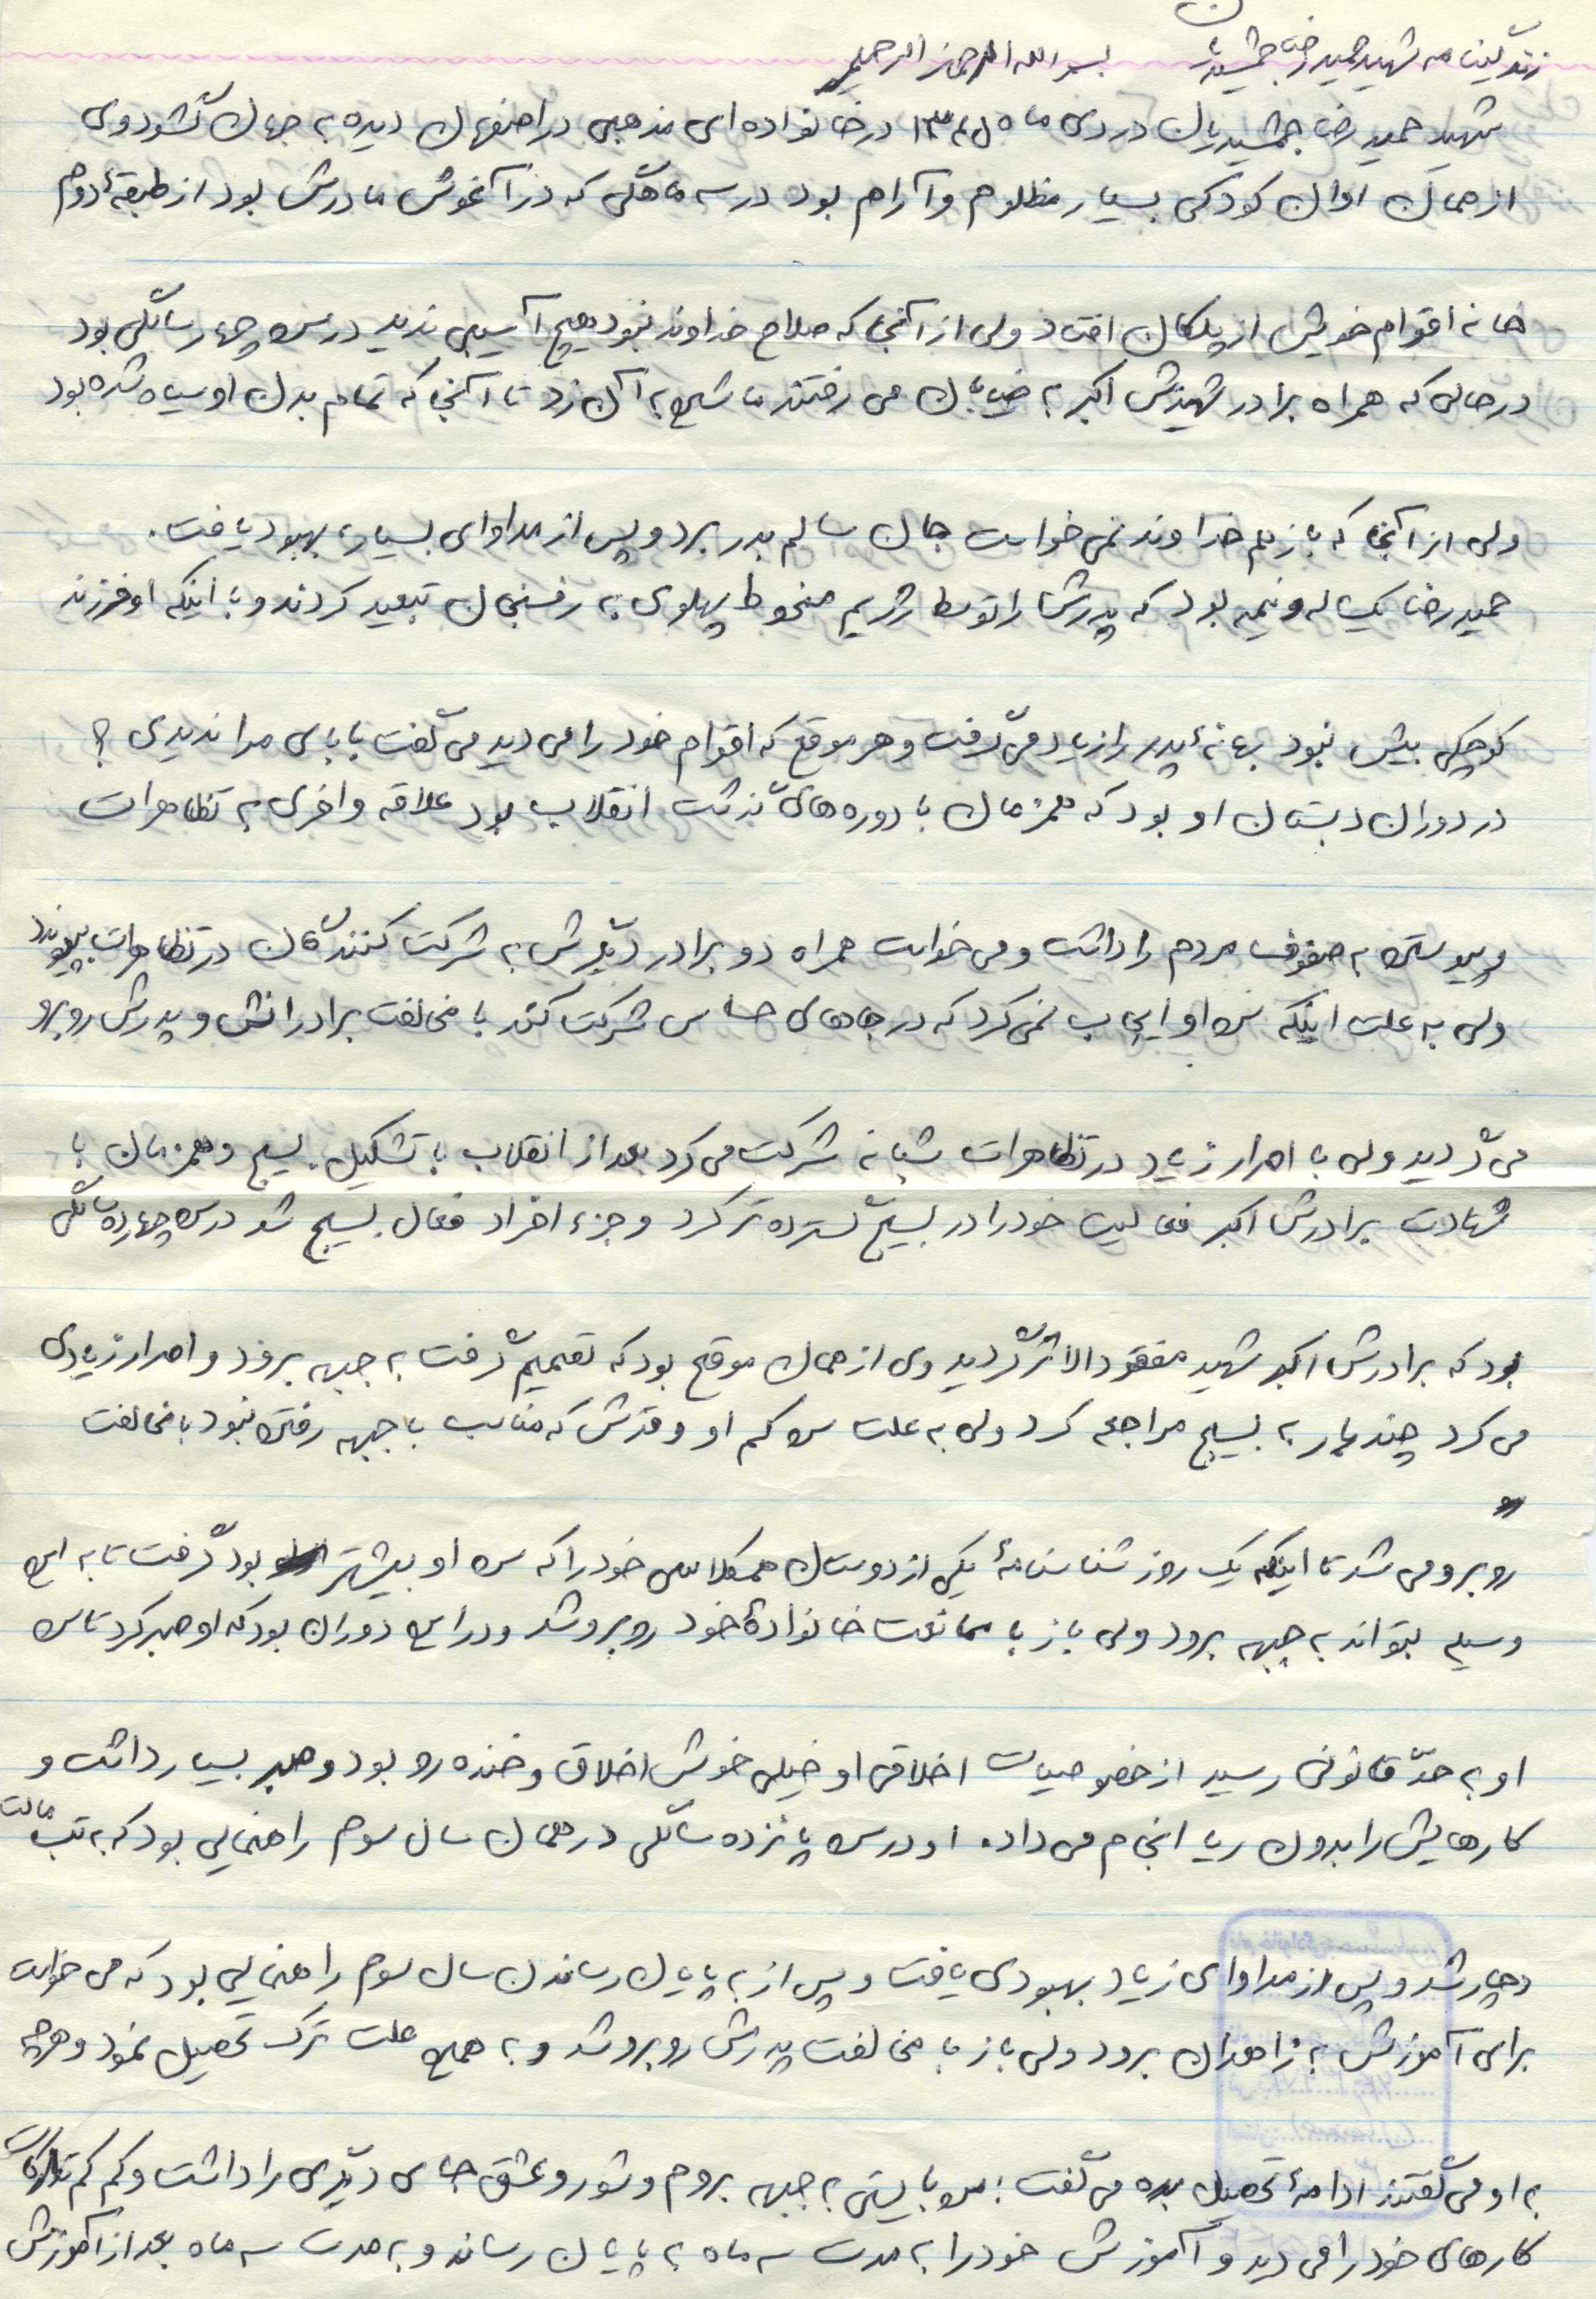 زندگینامه شهید حمیدرضا جمشیدیان بسم الله الرحمن الرحیم
شهید حمیدرضا جمشیدیان در دی ماه در خانواده‌ای مذهبی در اصفهان دیده به جهان گشود وی
از همان اوان کودکی بسیار مظلوم و آرام بود در سه ماهگی که در آغوش مادرش بود از طبقهٔ دوم
خانه اقوام خویش از پلکان افتاد ولی از آنجا که صلاح خداوند نبود هیچ آسیبی ندید در سن چهار سالگی بود
در حالی که همراه برادر شهیدش اکبر به خیابان می رفتند ماشین به آن زد تا آنجا که تمام بدن او سیاه شده بود
ولی از آنجا که باز هم خداوند نمی خواست جان سالم بدر برد و پس از مداوای بسیار، بهبود یافت.
حمیدرضا یکساله و نیمه بود که پدرش را توسط رژیم منحوط پهلوی به رفسنجان تبعید کردند و با اینکه او فرزند
کوچکی بیش نبود بهانهٔ پدر را زیاد می‌گرفت و هر موقع که اقوام خود را می دید می گفت بابای مرا ندیدی ؟
در دوران دبستان او بود که همزمان با دوره های گذشت انقلاب بود علاقه وافری به تظاهرات
و پیوستن به صفوف مردم را داشت و می خواست همراه دو برادر دیگرش به شرکت کنندگان در تظاهرات بپیوندد
ولی به علت اینکه سن او ایجاب نمی کرد که در جاهای حساس شرکت کند با مخالفت برادرانش و پدرش روبرو
می گردید ولی با اصرار زیاد در تظاهرات شبانه شرکت می کرد بعد از انقلاب با تشکیل بسیج و همزمان با
شهادت برادرش اکبر فعالیت خود را در بسیج گسترده تر کرد و جزء افراد فعال بسیج شد در سن چهارده سالگی
بود که برادرش اکبر شهید مفقودالاثر گردید وی از همان موقع بود که تصمیم گرفت به جبهه برود و اصرار زیادی
می کرد چند بار به بسیج مراجعه کرد ولی به علت سن کم او و قدش که مناسب با جبهه رفتن نبود با مخالفت
روبرو می شد تا اینکه یک روز شناسنامهٔ یکی از دوستان همکلاسی خود را که سن او بیشتر بود گرفت تا به این
وسیله بتواند به جبهه برود ولی باز با ممانعت خانوادهٔ خود روبرو شد و در این دوران بود که او صبر کرد تا سن
او به حدّ قانونی رسید از خصوصیات اخلاقی او خیلی خوش اخلاق و خنده رو بود و صبر بسیار داشت و
کارهایش را بدون ریا انجام می داد. او در سن پانزده سالگی در همان سال سوم راهنمایی بود که به تب مالت
دچار شد و پس از مداوای زیاد بهبودی یافت و پس از به پایان رساندن سال سوم راهنمایی بود که می خواست
برای آموزش به زاهدان برود ولی باز با مخالفت پدرش روبرو شد و به همین علت ترک تحصیل نمود و هرچه
به او می گفتند ادامهٔ تحصیل بده می گفت : من بایستی به جبهه بروم و شور و عشق جای دیگری را داشت و کم کم تدارکات
کارهای خود را می دید و آموزش خود را به مدت سه ماه به پایان رساند و به مدت سه ماه بعد از آموزش